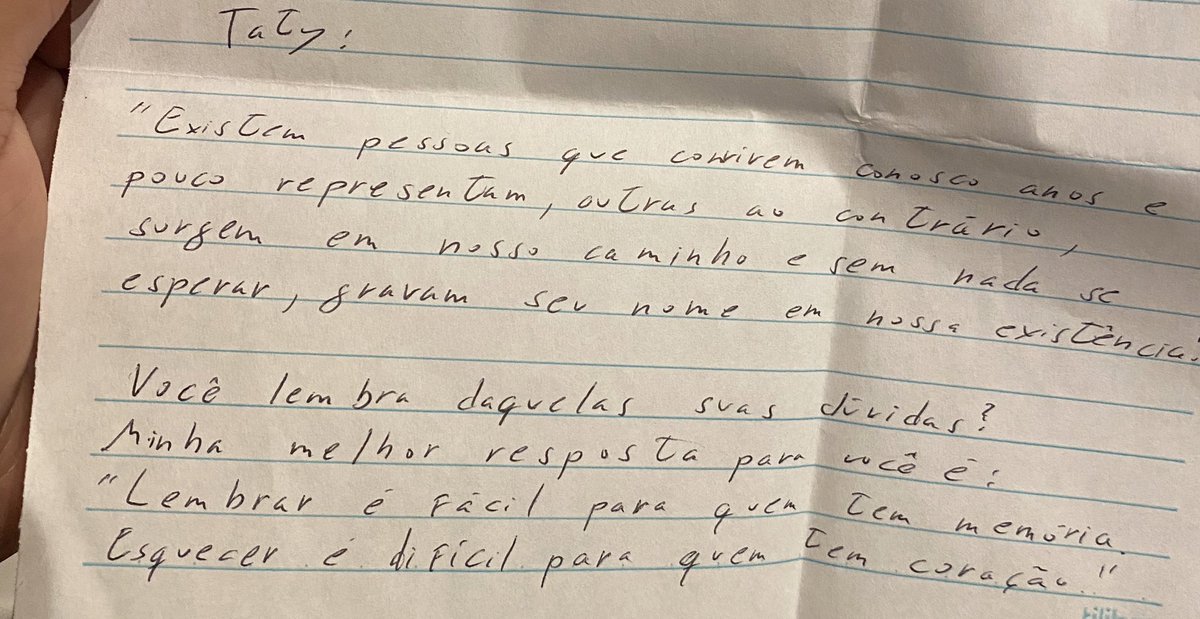 Taty:
"Existem pessoas que convivem conosco anos e
pouco representam, outras ao contrário,
surgem em nosso caminho e sem nada se
esperar, gravam seu nome em nossa existência."
Você lembra daquelas suas dúvidas?
Minha melhor resposta para você é:
"Lembrar é fácil para quem tem memória.
Esquecer é difícil para quem tem coração"